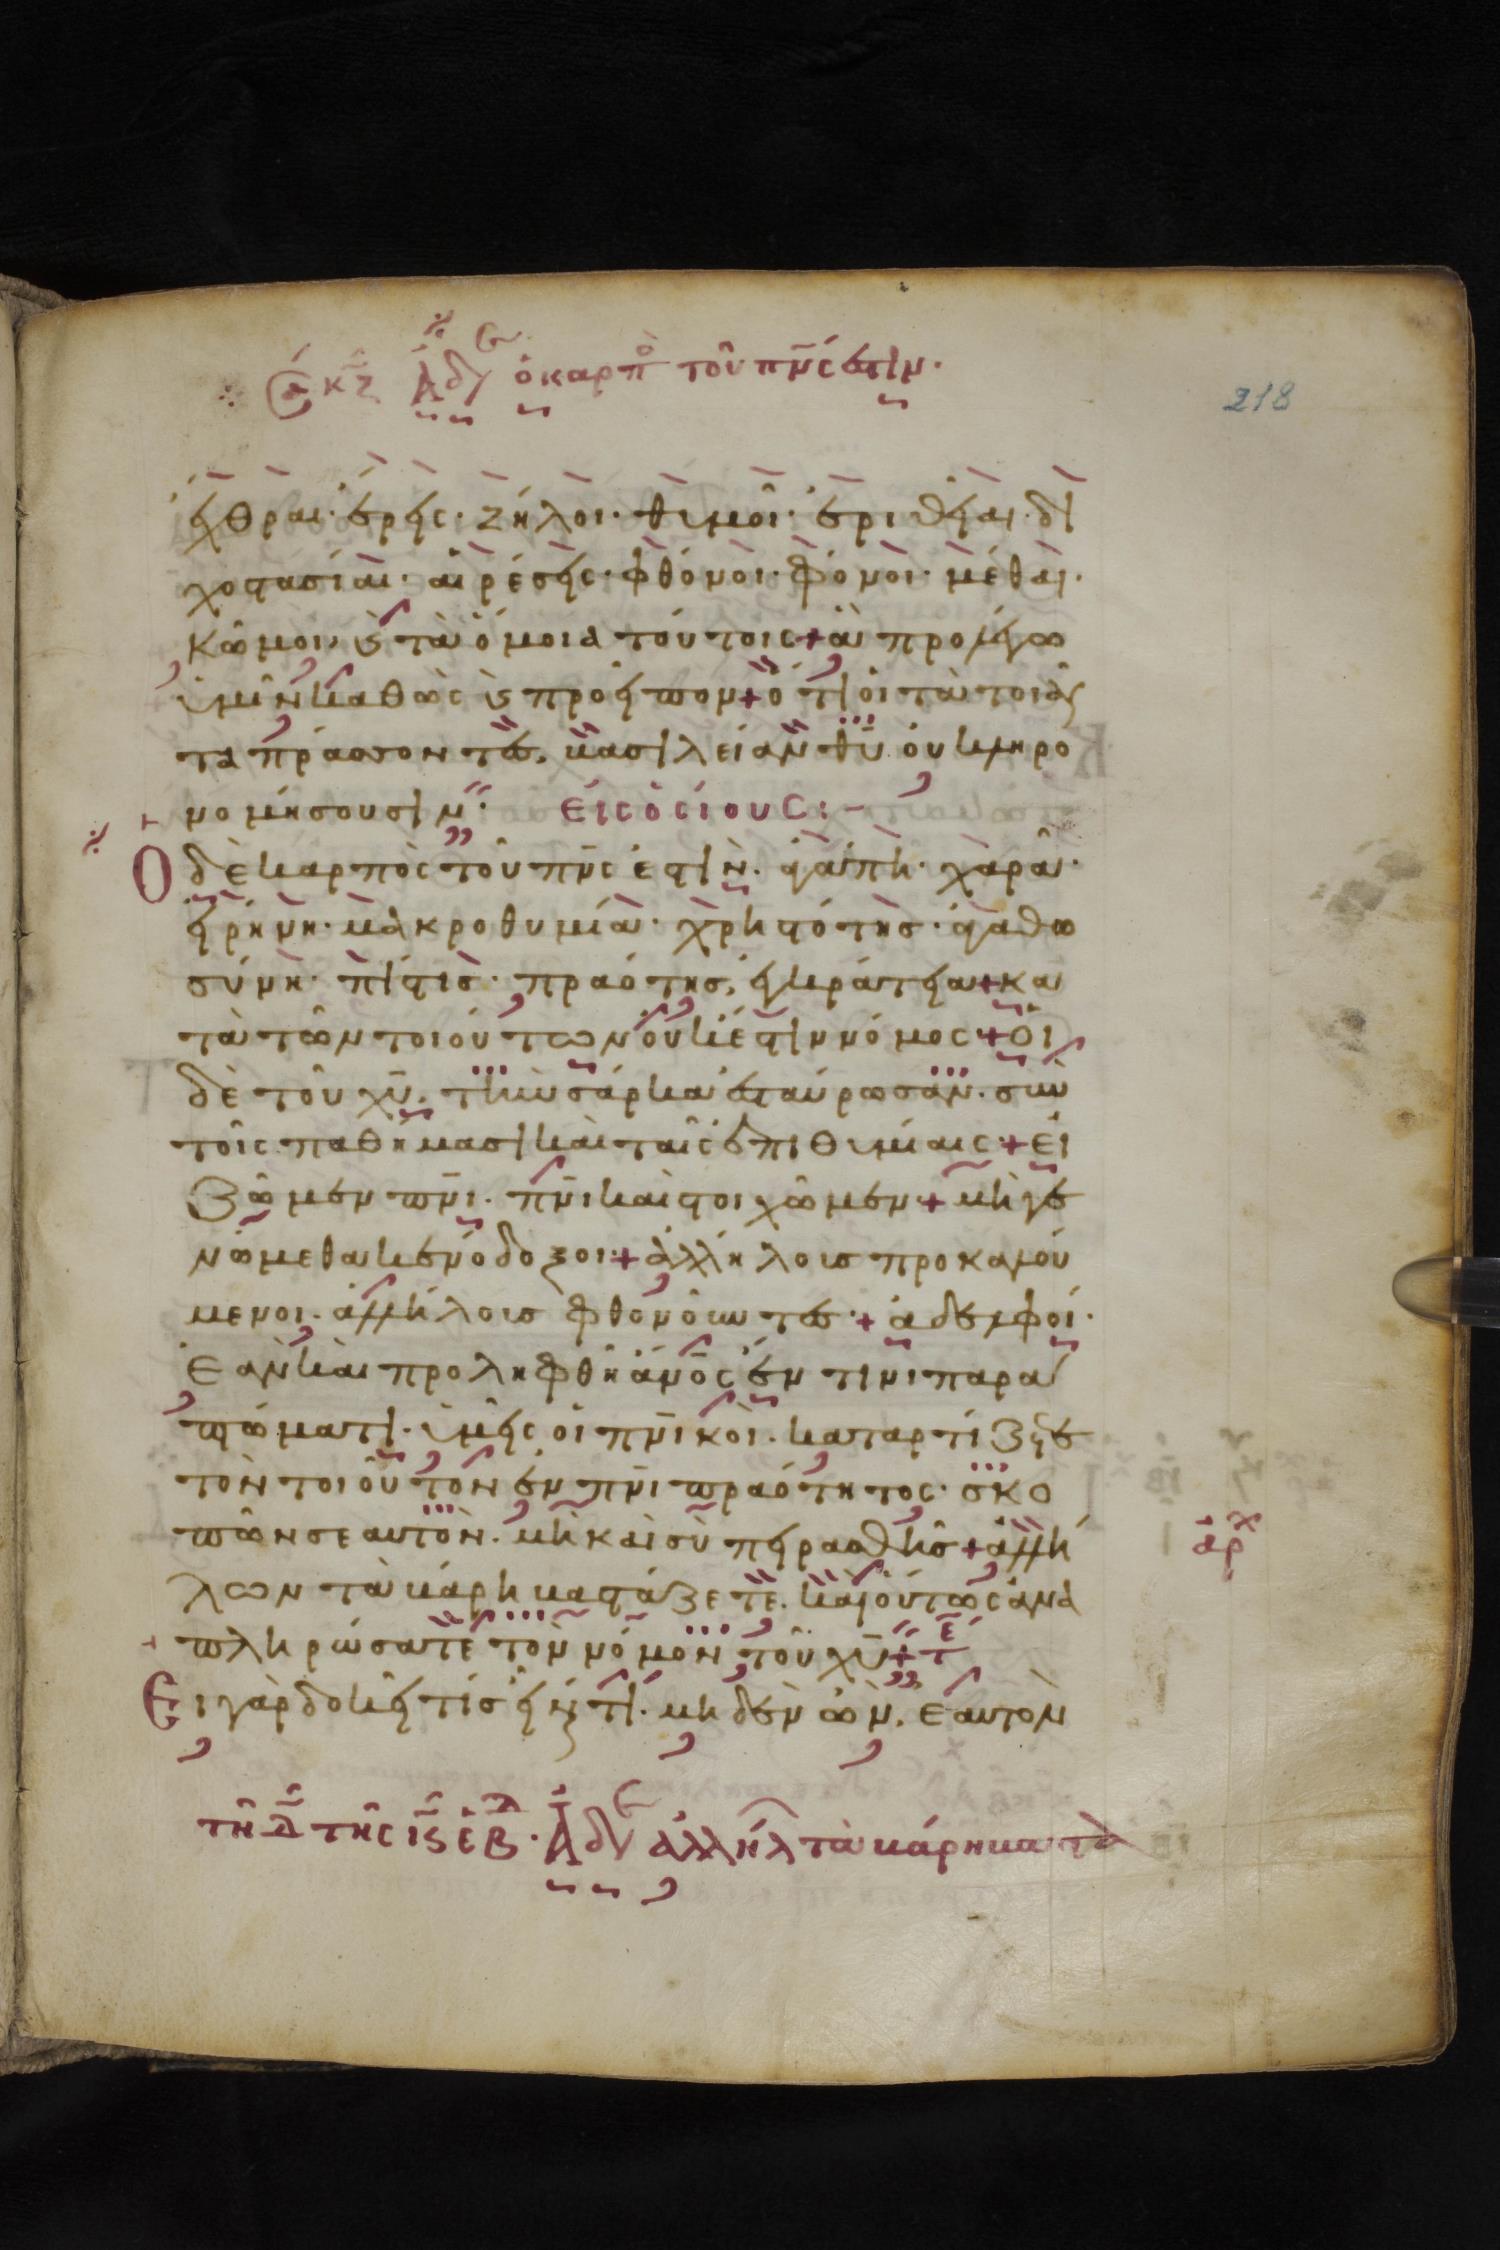 κυ κζ ἀδε ὁ καρπὸ τοῦ πν̅ς ἐστιν·
218
ἔχθραι· ἔρεις· ζῆλοι· θυμοί· ἐριθεῖαι· δι
χοστασίαι· αἱρέσεις· φθόνοι· φόνοι· μέθαι·
κῶμοι, καὶ τὰ ὅμοια τούτοις + ἃ προλέγω
ὑμῖν καθὼς καὶ προεῖπον + ὅτι οἱ τὰ τοιαῦ
τα πράσσοντες, βασιλείαν θ̅υ οὐ κληρο
νομήσουσιν· εἰς ὁσίους :-
Ὁ δὲ καρπὸς τοῦ πν̅ς ἐστιν· ἀγάπη· χαρά·
εἰρήνη· μακροθυμία· χρηστότης· ἀγαθω
σύνη· πίστις· πραότης, ἐγκράτεια + κα
τὰ τῶν τοιούτων οὐκ ἔστιν νόμος + οἱ
δὲ τοῦ χ̅υ, τὴν σάρκα ἐσταύρωσαν· σὺν
τοῖς παθήμασι καὶ ταῖς ἐπιθυμίαις + εἰ
ζῶμεν πν̅ι· πν̅ι καὶ στοιχῶμεν + μὴ γε
νώμεθα κενόδοξοι + ἀλλήλοις προκαλού
μενοι· ἀλλήλοις φθονοῦντες + ἀδελφοί·
Ἐὰν καὶ προληφθῆ ἄν̅ος ἔν τινι παρα
πτώματι· ὑμεῖς οἱ πν̅ικοὶ· καταρτίζετε
τὸν τοιοῦτον ἐν πν̅ι πραότητος· σκο
πῶν σεαυτὸν· μὴ καὶ σὺ πειρασθῆς + ἀλλή
ἀρχ
λων τὰ βάρη βαστάζετε· καὶ οὕτως ἀνα
πληρώσατε τὸν νόμον τοῦ χ̅υ + τε
Εἰ γὰρ δοκεῖ τίς εἶναί τι· μηδὲν ὤν, ἑαυτὸν
τῆ δ τῆς ις ἑβδ· ἀδε ἀλλήλ τὰ βάρη βαστα